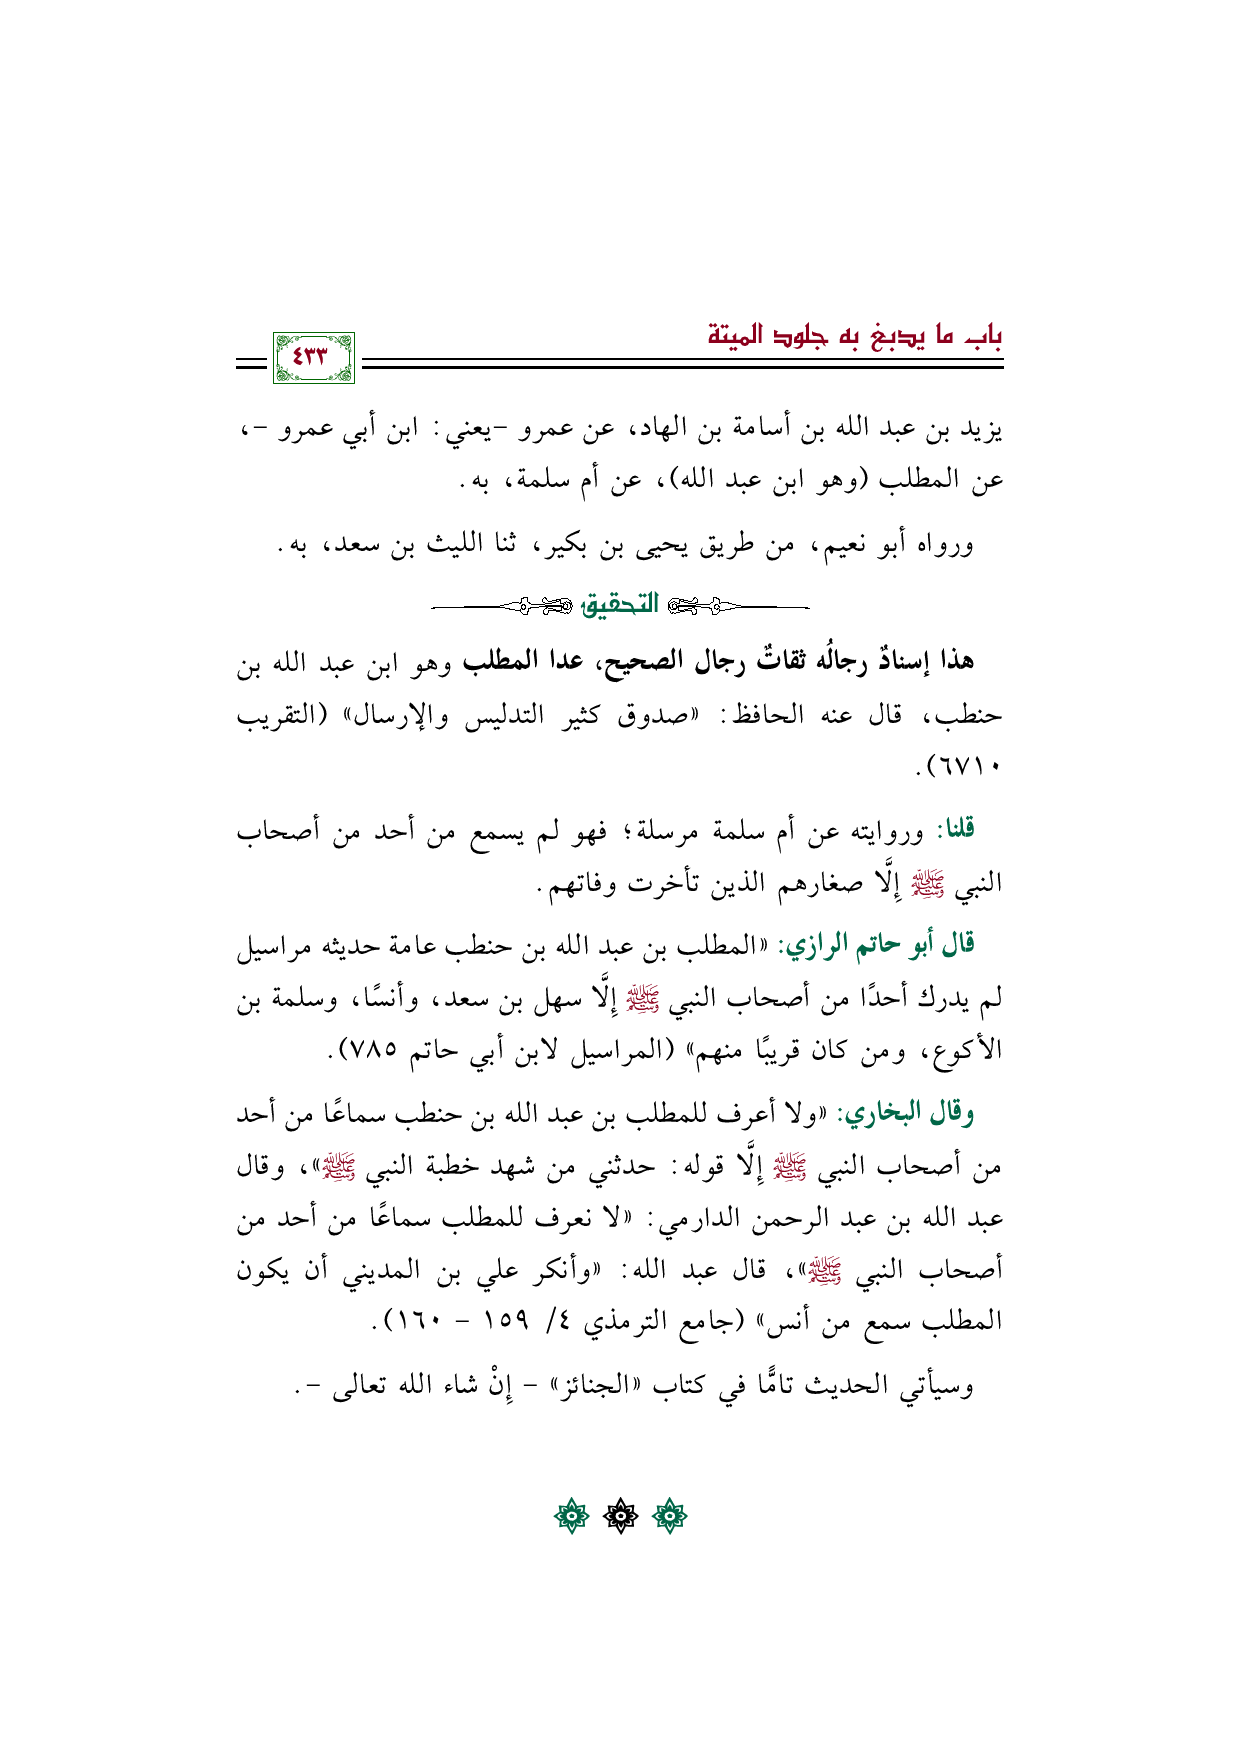 باب ما يدبغ به جلود الميتة
٤٣٣
يزيد بن عبد الله بن أسامة بن الهاد، عن عمرو -يعني: ابن أبي عمرو -،
عن المطلب (وهو ابن عبد الله)، عن أم سلمة، به.
ورواه أبو نعيم، من طريق يحيى بن بكير، ثنا الليث بن سعد، به.
التحقيق
هذا إسنادٌ رجالُه ثقاتٌ رجال الصحيح، عدا المطلب وهو ابن عبد الله بن
حنطب، قال عنه الحافظ: «صدوق كثير التدليس والإرسال» (التقريب
٦٧١٠).
قلنا: وروايته عن أم سلمة مرسلة؛ فهو لم يسمع من أحد من أصحاب
النبي ﷺ إِلَّا صغارهم الذين تأخرت وفاتهم.
قال أبو حاتم الرازي: «المطلب بن عبد الله بن حنطب عامة حديثه مراسيل
لم يدرك أحدًا من أصحاب النبي ﷺ إِلَّا سهل بن سعد، وأنسًا، وسلمة بن
الأكوع، ومن كان قريبًا منهم» (المراسيل لابن أبي حاتم ٧٨٥).
وقال البخاري: «ولا أعرف للمطلب بن عبد الله بن حنطب سماعًا من أحد
من أصحاب النبي ﷺ إِلَّا قوله: حدثني من شهد خطبة النبي ﷺ»، وقال
عبد الله بن عبد الرحمن الدارمي: «لا نعرف للمطلب سماعًا من أحد من
أصحاب النبي ﷺ»، قال عبد الله: «وأنكر علي بن المديني أن يكون
المطلب سمع من أنس» (جامع الترمذي ٤/ ١٥٩ - ١٦٠).
وسيأتي الحديث تامًّا في كتاب «الجنائز» - إِنْ شاء الله تعالى -.